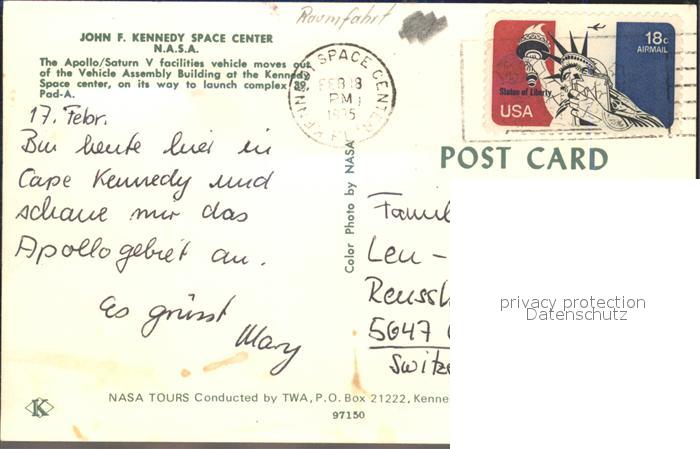 Raumfahrt
JOHN F. KENNEDY SPACE CENTER
N.A.S.A.
The Apollo/Saturn V facilities vehicle moves out
of the Vehicle Assembly Building at the Kennedy
Space center, on its way to launch complex 39,
Pad-A.
17. Febr.
Bin heute hier in
Cape Kennedy und
schaue mir das
Apollogebiet an.
Es grüsst
Mary
KENNEDY SPACE CENTER, FL
FEB 18
PM
1975
18c
AIRMAIL
Statue of Liberty
USA
POST CARD
Color Photo by NASA
Famil
Leu -
Reussh
5647
Switze
privacy protection
Datenschutz
NASA TOURS Conducted by TWA, P.O. Box 21222, Kenne
97150
K